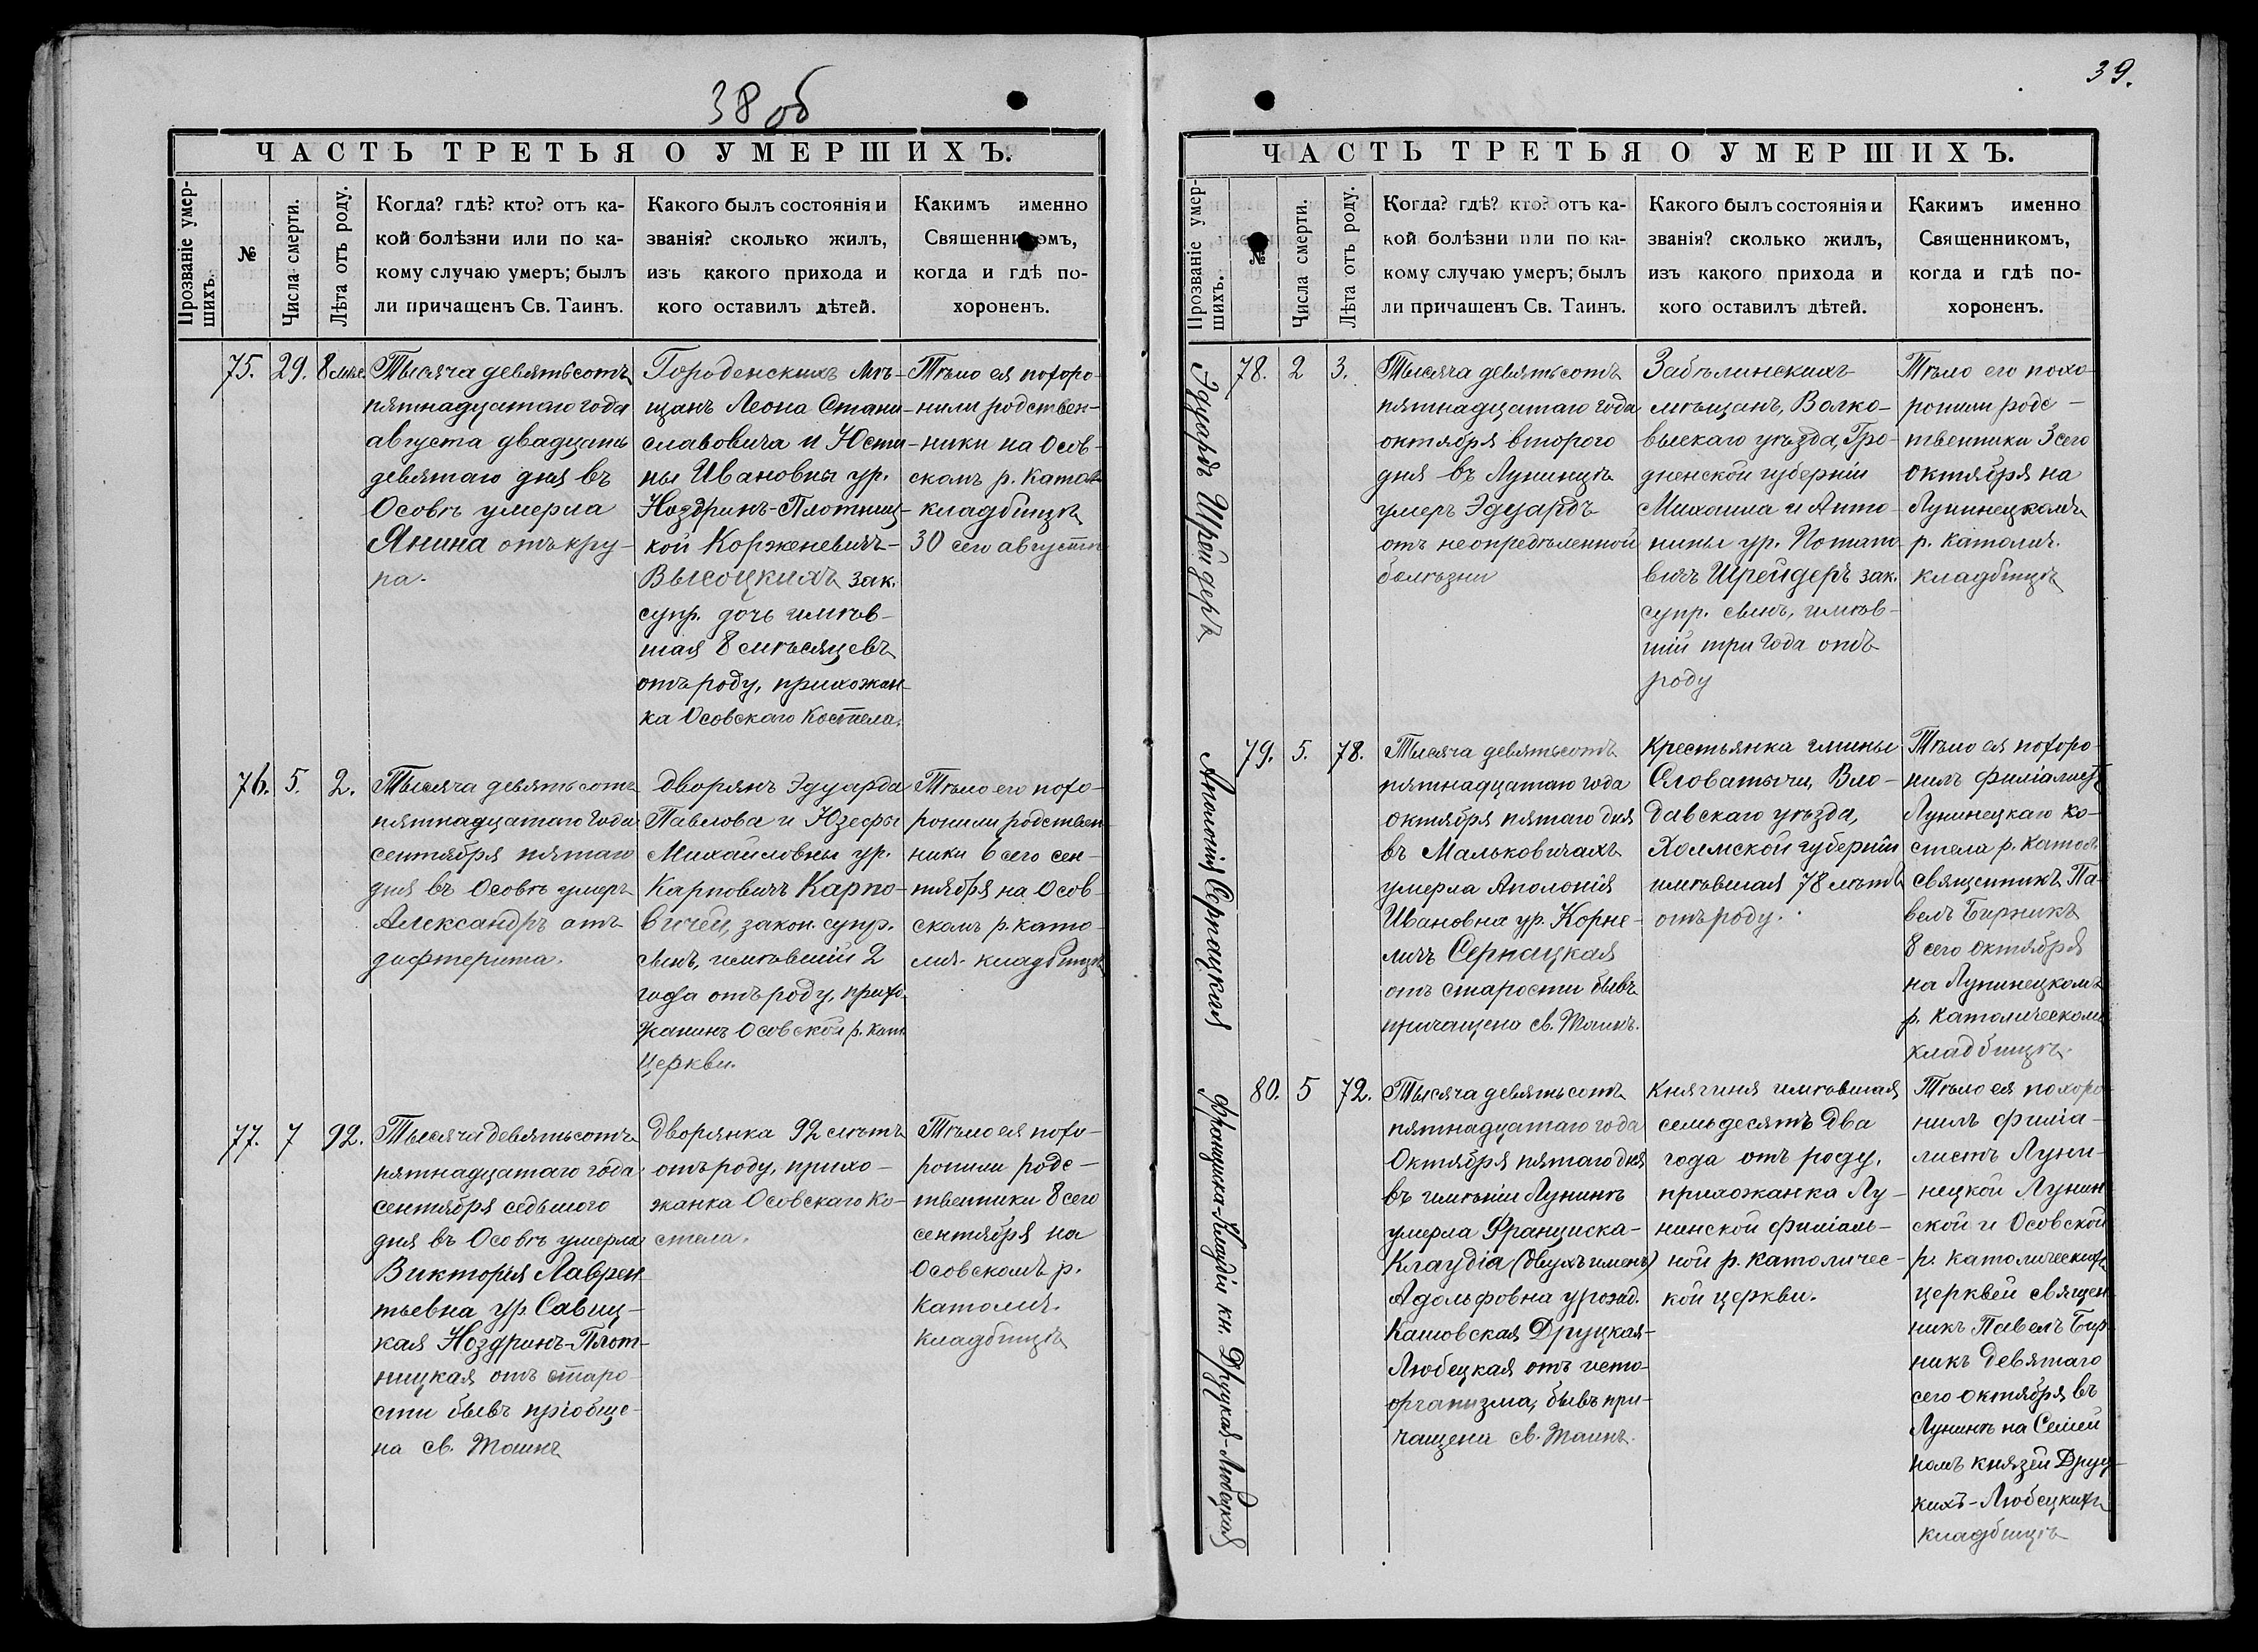 38 об
ЧАСТЬ ТРЕТЬЯ О УМЕРШИХЪ.
Прозваніе умер-
шихъ.
№
Числа смерти.
Лѣта отъ роду.
Когда? гдѣ? кто? отъ ка-
кой болѣзни или по ка-
кому случаю умеръ; былъ
ли причащенъ Св. Таинъ.
Какого былъ состоянія и
званія? сколько жилъ,
изъ какого прихода и
кого оставилъ дѣтей.
Какимъ именно
Священникомъ,
когда и гдѣ по-
хороненъ.
75.
29.
8 мѣс.
Тысяча девятьсотъ
пятнадцатаго года
августа двадцать
девятаго дня въ
Осовѣ умерла
Янина отъ кру-
па.
Городенскихъ мѣ-
щанъ Леона Стани-
славовича и Юсти-
ны Ивановны ур.
Ноздринъ-Плотниц-
кой Корженевичъ-
Высоцкихъ зак.
супр. дочь имѣв-
шая 8 мѣсяцевъ
отъ роду, прихожан-
ка Осовскаго Костела.
Тѣло ея похоро-
нили родствен-
ники на Осов-
скомъ р. Катол.
кладбищѣ
30 сего августа
76.
5.
2.
Тысяча девятьсотъ
пятнадцатаго года
сентября пятаго
дня въ Осовѣ умеръ
Александръ отъ
дифтерита.
Дворянъ Эдуарда
Павлова и Юзефы
Михайловны ур.
Карповичъ Карпо-
вичей, закон. супр.
сынъ, имѣвшій 2
года отъ роду, прихо-
жанинъ Осовской р. кат.
Церкви.
Тѣло его похо-
ронили родствен-
ники 6 сего сен-
тября на Осов-
скомъ р. като-
лич. кладбищѣ
77.
7
92.
Тысяча девятьсотъ
пятнадцатаго года
сентября седьмого
дня въ Осовѣ умерла
Викторія Лаврен-
тьевна ур. Савиц-
кая Ноздринъ-Плот-
ницкая отъ старо-
сти бывъ пріобще-
на св. Таинъ
Дворянка 92 лѣтъ
отъ роду, прихо-
жанка Осовскаго Ко-
стела.
Тѣло ея похо-
ронили родс-
твенники 8 сего
сентября на
Осовскомъ р.
Католич.
кладбищѣ
39.
ЧАСТЬ ТРЕТЬЯ О УМЕРШИХЪ.
Прозваніе умер-
шихъ.
№
Числа смерти.
Лѣта отъ роду.
Когда? гдѣ? кто? отъ ка-
кой болѣзни или по ка-
кому случаю умеръ; былъ
ли причащенъ Св. Таинъ.
Какого былъ состоянія и
званія? сколько жилъ,
изъ какого прихода и
кого оставилъ дѣтей.
Какимъ именно
Священникомъ,
когда и гдѣ по-
хороненъ.
Эдуардъ Шрейдеръ
78.
2
3.
Тысяча девятьсотъ
пятнадцатаго года
октября второго
дня въ Лунинцѣ
умеръ Эдуардъ
отъ неопредѣленной
болѣзни
Забѣлинскихъ
мѣщанъ, Волко-
выскаго уѣзда, Гро-
дненской губерніи
Михаила и Анто-
нины ур. Потапо-
вичъ Шрейдеръ зак.
супр. сынъ, имѣв-
шій три года отъ
роду
Тѣло его похо-
ронили родс-
твенники 3 сего
октября на
Лунинецкомъ
р. католич.
кладбищѣ
Аполонія Сернацкая
79.
5.
78.
Тысяча девятьсотъ
пятнадцатаго года
октября пятаго дня
въ Мальковичахъ
умерла Аполонія
Ивановна ур. Корне-
личъ Сернацкая
отъ старости бывъ
причащена св. Таинъ.
Крестьянка гмины
Словатычи, Вло-
давскаго уѣзда,
Холмской губерніи
имѣвшая 78 лѣтъ
отъ роду.
Тѣло ея похоро-
нилъ филіалистъ
Лунинецкаго Ко-
стела р. катол.
священникъ Па-
велъ Бирникъ
8 сего октября
на Лунинецкомъ
р. католическомъ
кладбищѣ.
Франциска-Клаудія кн. Друцкая-Любецкая
80.
5
72.
Тысяча девятьсотъ
пятнадцатаго года
Октября пятаго дня
въ имѣніи Лунинѣ
умерла Франциска-
Клаудія (двухъ именъ)
Адольфовна урожд.
Кашовская Друцкая-
Любецкая отъ исто-
организма, бывъ при-
чащена св. Таинъ.
Княгиня имѣвшая
семьдесятъ два
года отъ роду,
прихожанка Лу-
нинской филіаль-
ной р. католичес-
кой церкви.
Тѣло ея похоро-
нилъ филіа-
листъ Луни-
нецкой Лунин-
ской и Осовской
р. католическихъ
церквей священ-
никъ Павелъ Бир-
никъ девятаго
сего октября въ
Лунинѣ на Семей
номъ князей Друц-
кихъ-Любецкихъ
кладбищѣ